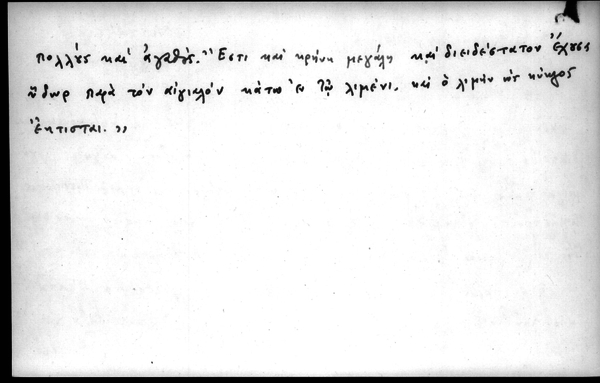 πολλοὺς καὶ ἀγαθούς. Ἔστι καὶ κρήνη μεγάλη καὶ διειδέστατον ἔχουσα
ὕδωρ παρὰ τὸν αἰγιαλόν κάτω ἐν τῷ λιμένι. καὶ ὁ λιμὴν ὡς κύκλος
ἔκτισται.»